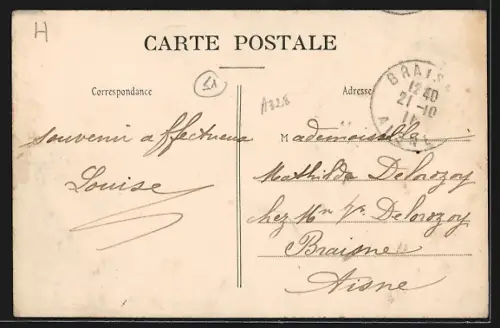 H
CARTE POSTALE
Correspondance
Adresse
A328
BRAISNE
12 40
21-10
11
AISNE
Souvenir affectueux
Louise
Mademoiselle
Mathilde Delorozoy
chez Mr Vr Delorozoy
Braisne
Aisne